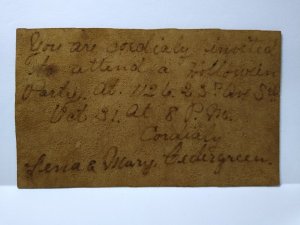 You are cordialy invited
to attend a Hollowein
Party, At. 1126. 23rd Ave So.
Oct 31. At 8 P.M.
Cordialy
Lena & Mary Cedergreen.